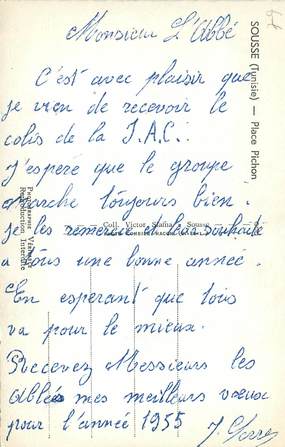 Monsieur L'Abbé
C'est avec plaisir que
je vien de recevoir le
colis de la J.A.C.
J'esperé que le groupe
marche toujours bien.
Je les remercie et leur souhaite
a tous une bonne année.
En esperant que tous
va pour le mieux.
Recevez Messieurs les
Abbés mes meilleurs vœux
pour l'année 1955
SOUSSE (Tunisie) — Place Pichon
Reproduction Interdite
Coll. Victor Sousse